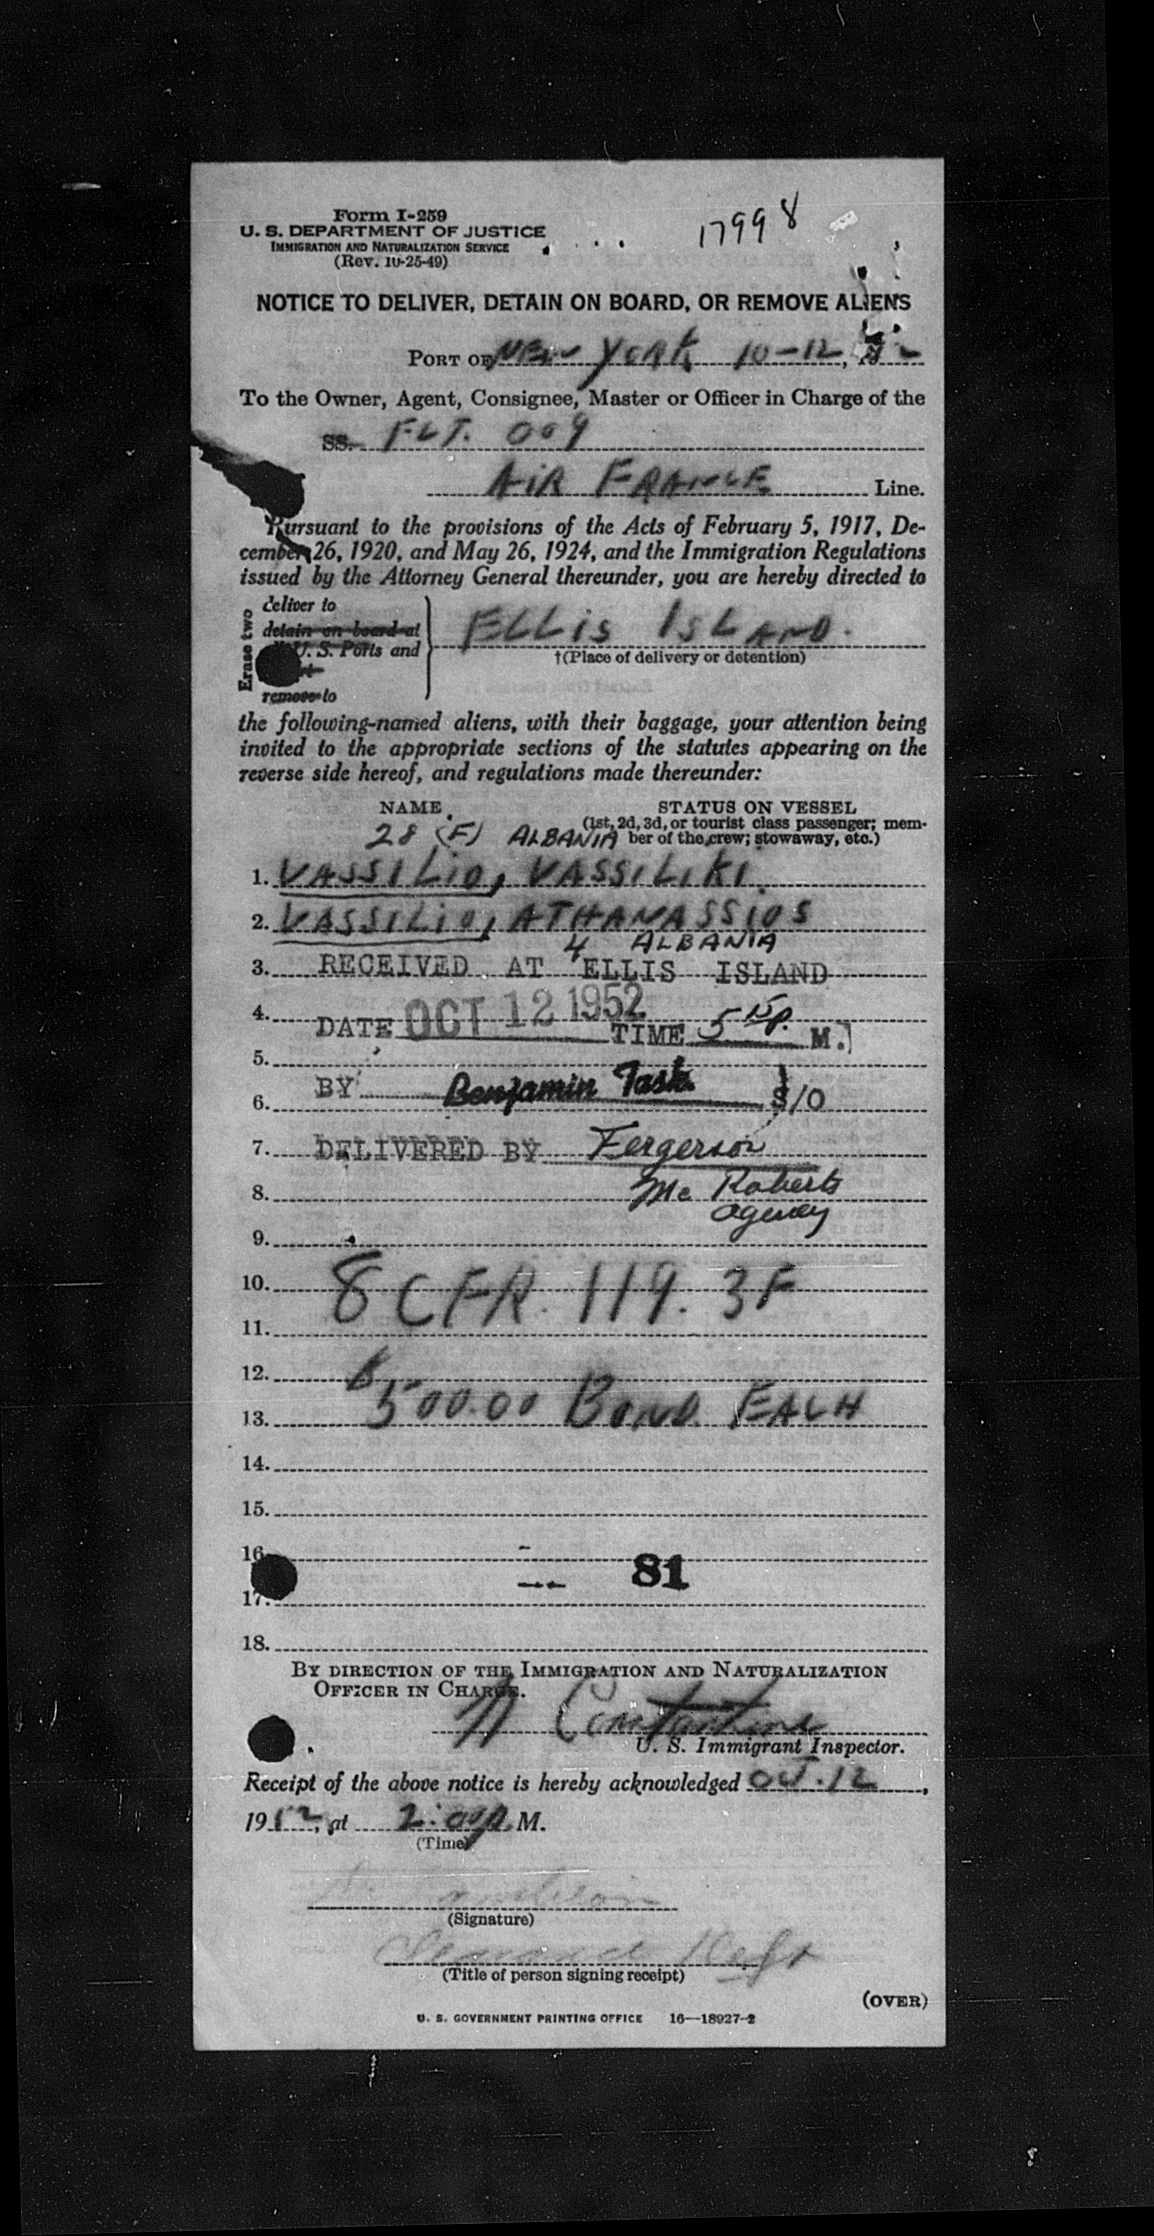 Form I-259
U. S. DEPARTMENT OF JUSTICE
IMMIGRATION AND NATURALIZATION SERVICE
(Rev. 10-25-49)
17998
NOTICE TO DELIVER, DETAIN ON BOARD, OR REMOVE ALIENS
PORT OF NEW YORK 10-12,
To the Owner, Agent, Consignee, Master or Officer in Charge of the
SS. FLT. 009
AIR FRANCE Line.
Pursuant to the provisions of the Acts of February 5, 1917, De-
cember 26, 1920, and May 26, 1924, and the Immigration Regulations
issued by the Attorney General thereunder, you are hereby directed to
Erase two
deliver to
detain on board at
U. S. Ports and
remove to
ELLIS ISLAND.
†(Place of delivery or detention)
the following-named aliens, with their baggage, your attention being
invited to the appropriate sections of the statutes appearing on the
reverse side hereof, and regulations made thereunder:
NAME STATUS ON VESSEL
(1st, 2d, 3d, or tourist class passenger; mem-
28 (F) ALBANIA ber of the crew; stowaway, etc.)
1. VASSILIO, VASSILIKI.
2. VASSILIO, ATHANASSIOS
4 ALBANIA
3. RECEIVED AT ELLIS ISLAND
4. DATE OCT 12 1952 TIME 5 15 P. M.
5.
6. BY Benjamin Task S/O
7. DELIVERED BY Fergerson
8. Mc Roberts
agency
9.
10. 8 CFR. 119. 3F
11.
12.
13. $500.00 BOND EACH
14.
15.
16.
81
17.
18.
BY DIRECTION OF THE IMMIGRATION AND NATURALIZATION
OFFICER IN CHARGE.
N Constantine
U. S. Immigrant Inspector.
Receipt of the above notice is hereby acknowledged OCT. 12,
1952, at 2:00 P. M.
(Time)
(Signature)
(Title of person signing receipt)
(OVER)
U. S. GOVERNMENT PRINTING OFFICE 16—18927-2